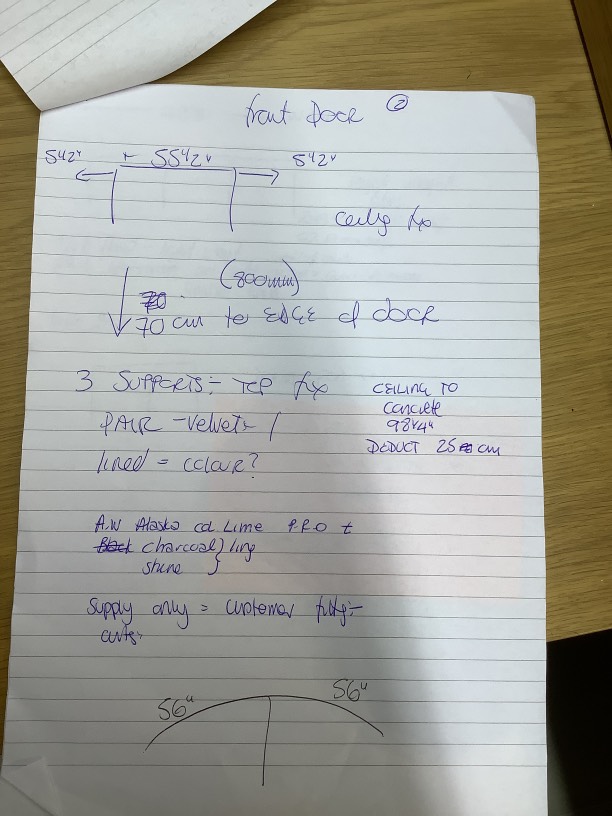 front DOOR ②
5 1/2" ← 55 1/2" → 5 1/2"
Ceiling fix
(800mm)
70 cm to EDGE of dOOR
3 SUPPORTS:- TOP fix
CEILING TO
Concrete
98 1/4"
DEDUCT 25 cm
PAIR - Velvet - /
lined = colour?
A.W Alaska col Lime P.R.O
charcoal } ling
stone
Supply only = customer fittg:-
56" 56"